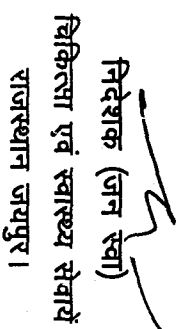 निदेशक (जन स्वा)
चिकित्सा एवं स्वास्थ्य सेवायें
राजस्थान जयपुर।